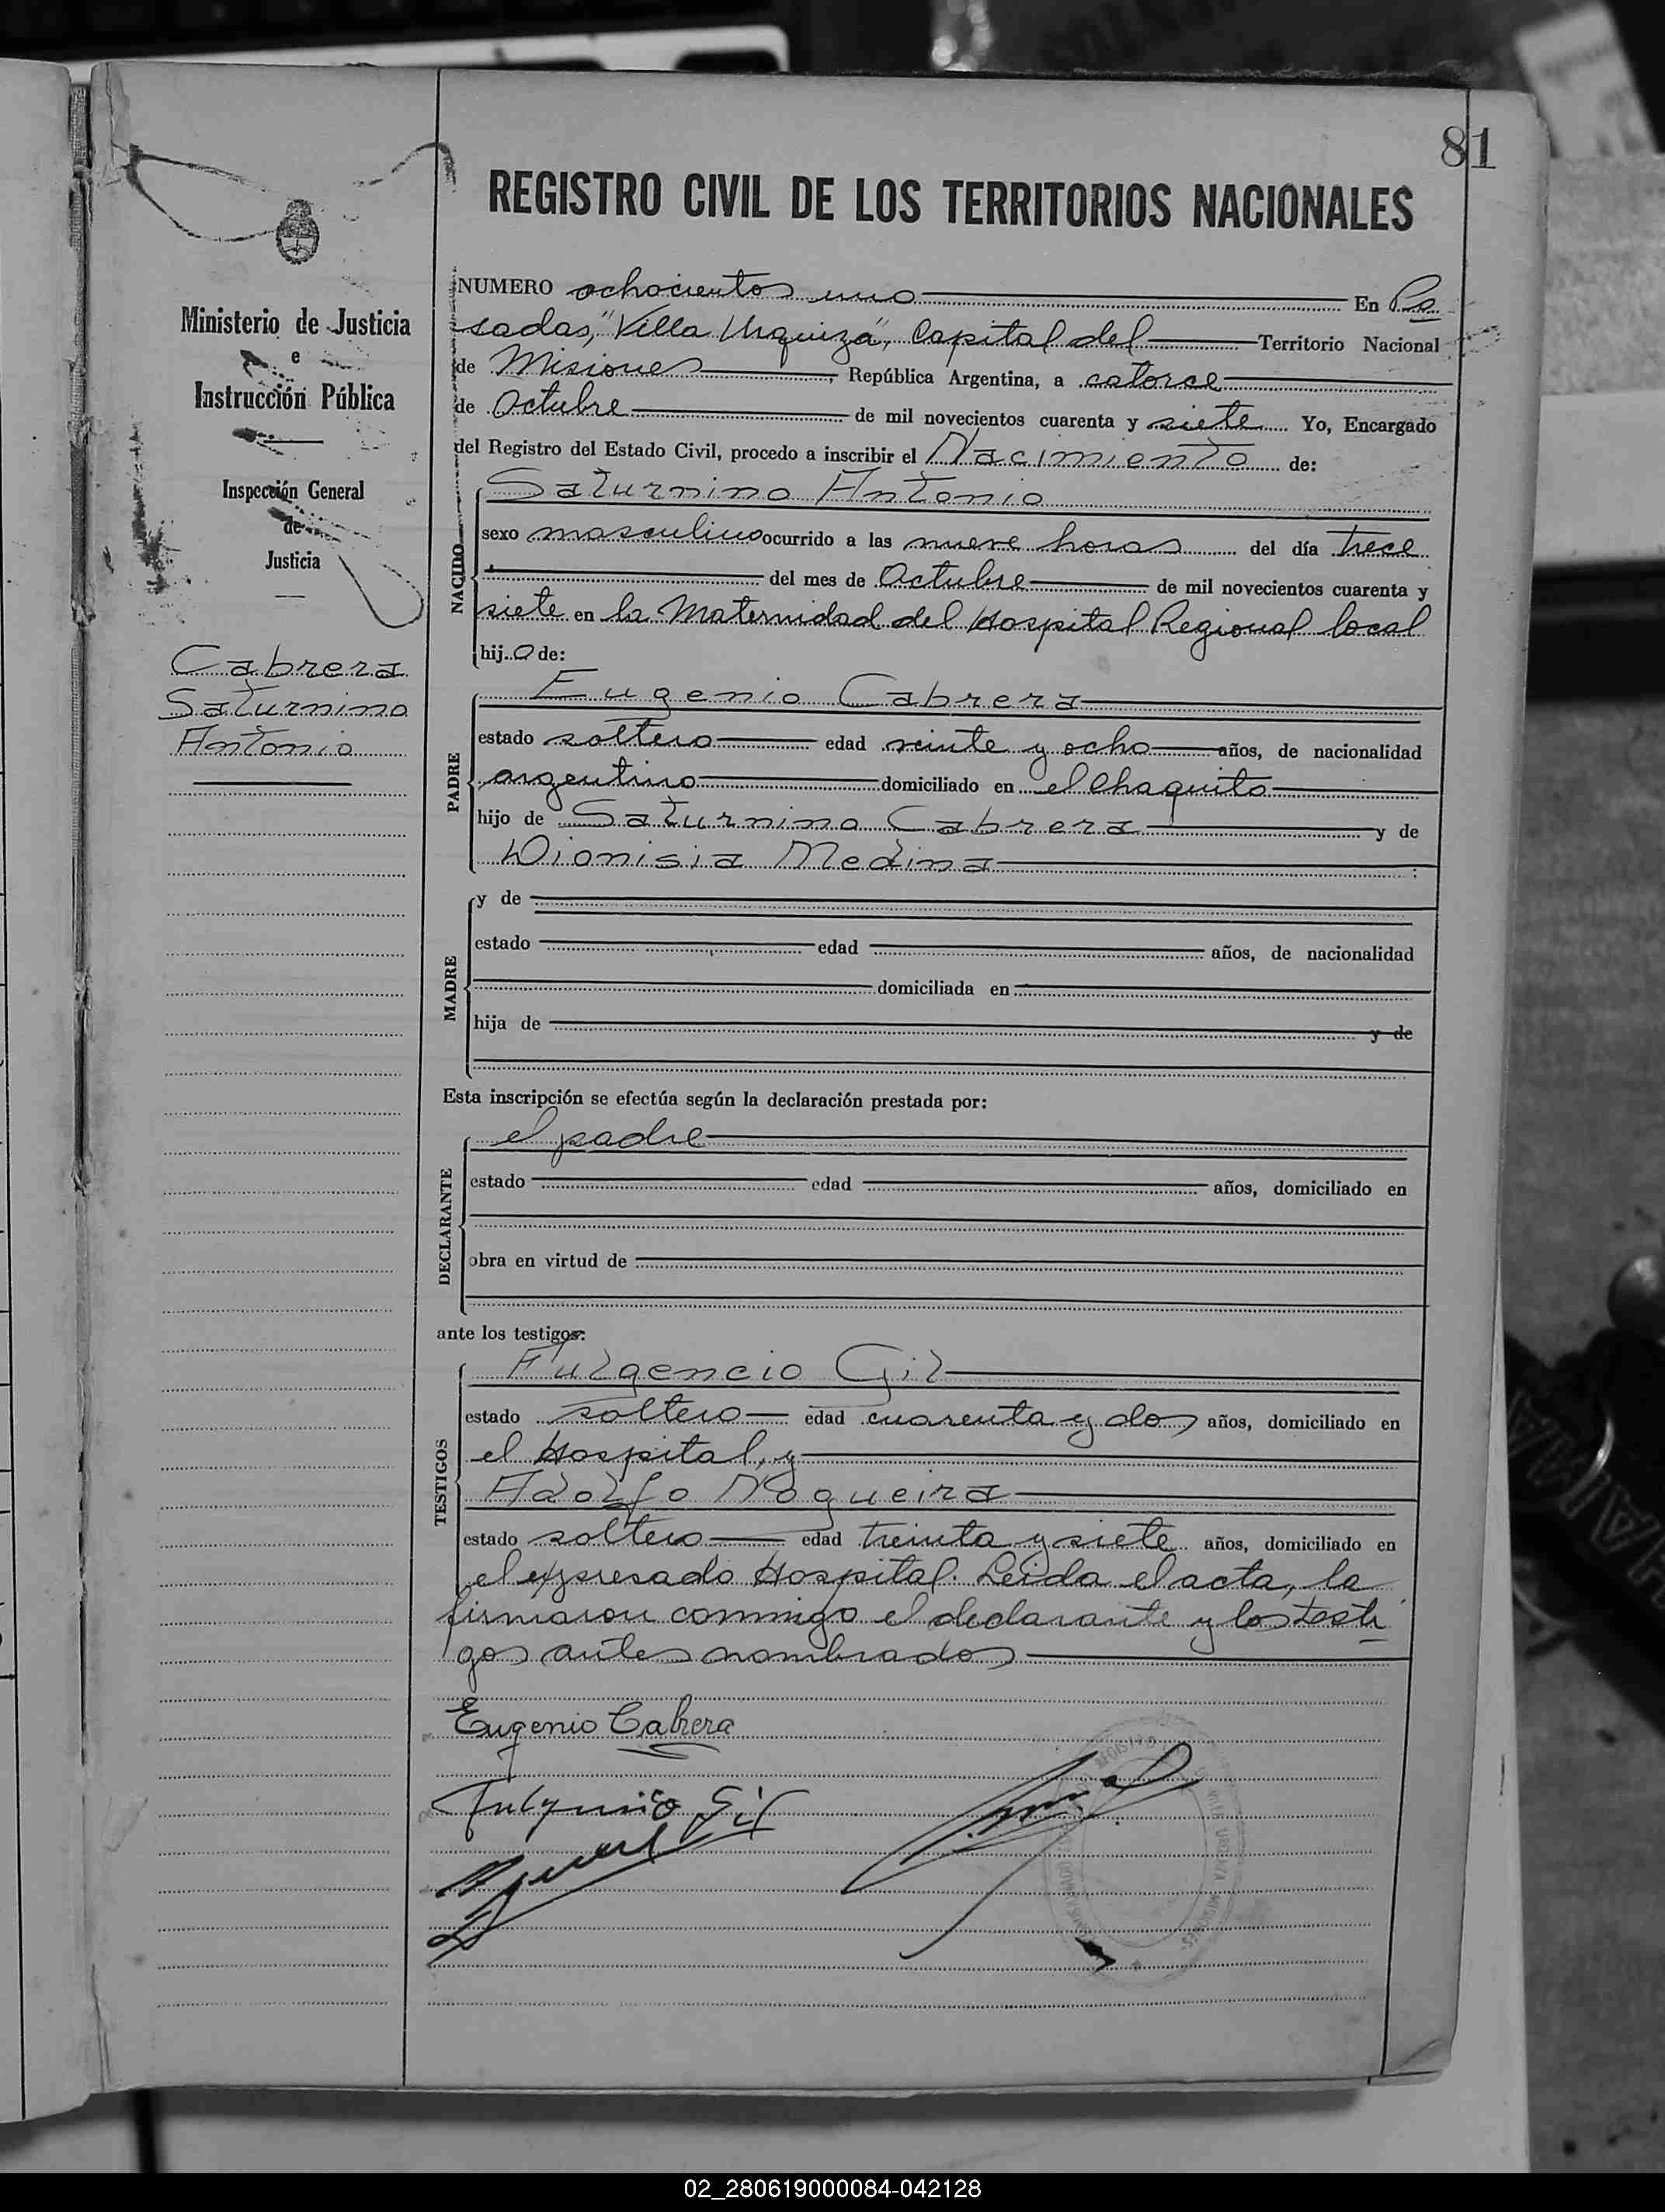 81
REGISTRO CIVIL DE LOS TERRITORIOS NACIONALES
Ministerio de Justicia
e
Instrucción Pública
Inspección General
de
Justicia
Cabrera
Saturnino
Antonio
NUMERO ochocientos uno En Po
sadas, "Villa Urquiza", Capital del Territorio Nacional
de Misiones, República Argentina, a catorce
de Octubre de mil novecientos cuarenta y siete Yo, Encargado
del Registro del Estado Civil, procedo a inscribir el Nacimiento de:
NACIDO
Saturnino Antonio
sexo masculino ocurrido a las nueve horas del día trece
del mes de Octubre de mil novecientos cuarenta y
siete en la Maternidad del Hospital Regional local
hijo de:
PADRE
Eugenio Cabrera
estado soltero edad veinte y ocho años, de nacionalidad
argentino domiciliado en el Chaquito
hijo de Saturnino Cabrera y de
Dionisia Medina
MADRE
y de
estado edad años, de nacionalidad
domiciliada en
hija de y de
Esta inscripción se efectúa según la declaración prestada por:
DECLARANTE
el padre
estado edad años, domiciliado en
obra en virtud de
ante los testigos:
TESTIGOS
Fulgencio Gil
estado soltero edad cuarenta y dos años, domiciliado en
el Hospital, y
Adolfo Nogueira
estado soltero edad treinta y siete años, domiciliado en
el expresado Hospital. Leida el acta, la
firmaron conmigo el declarante y los testi
gos antes nombrados
Eugenio Cabrera
Fulgencio Gil
02_280619000084-042128